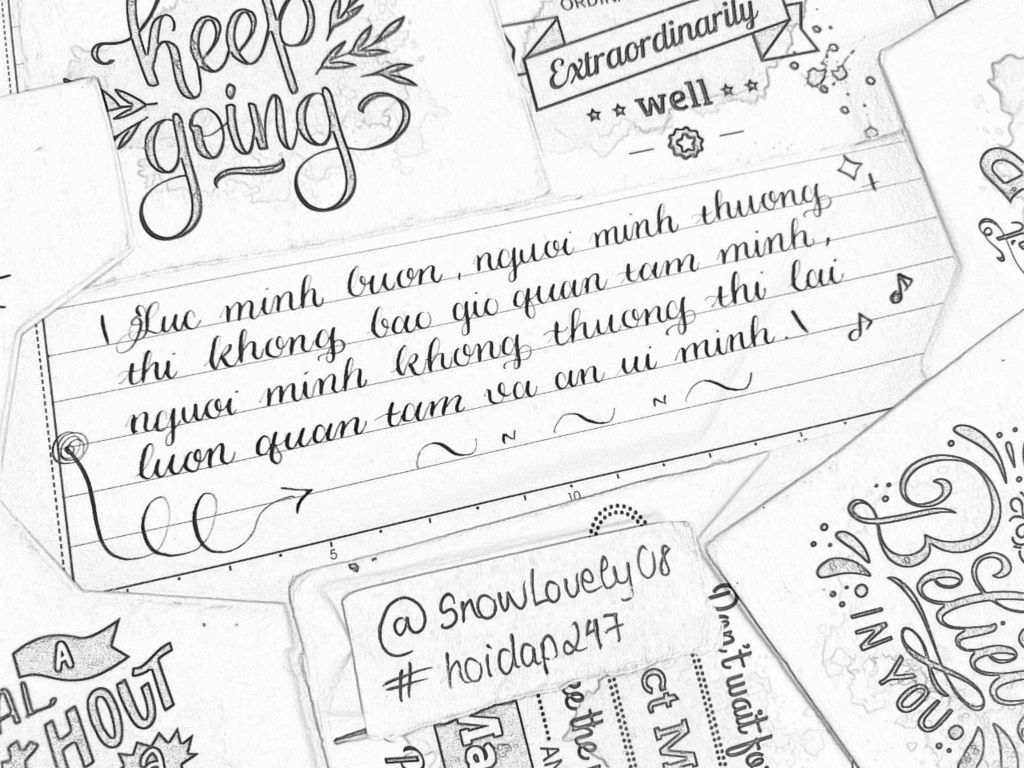 keep
going
Extraordinarily
well
\ Luc minh buon, nguoi minh thuong
thi khong bao gio quan tam minh,
nguoi minh khong thuong thi lai
luon quan tam va an ui minh. \
5
10
@SnowLovely08
#hoidap247
Believe
IN YOU
A
THOUT
Don't wait for
ct M
e the